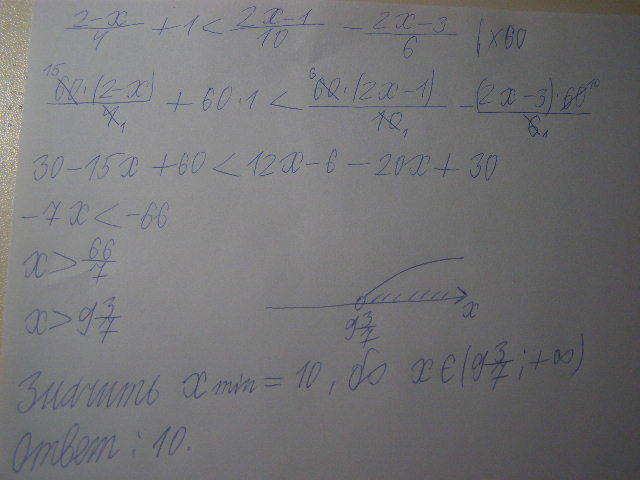 (2-x)/4 + 1 < (2x-1)/10 - (2x-3)/6 | ×60
15 60·(2-x)/4 1 + 60·1 < 6 60·(2x-1)/10 1 - (2x-3)·60 10/6 1
30-15x+60<12x-6-20x+30
-7x<-66
x>66/7
x>9 3/7
9 3/7 x
Значить x min = 10, бо x∈(9 3/7; +∞)
Ответ: 10.